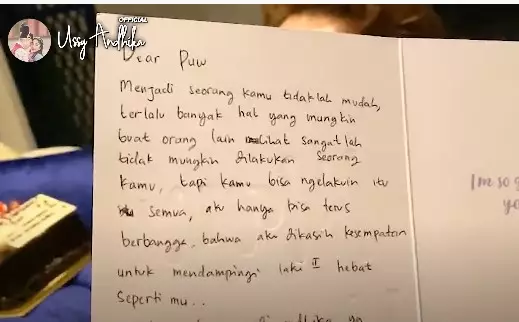 OFFICIAL
Ussy Andhika
Dear Puw
Menjadi seorang kamu tidaklah mudah,
terlalu banyak hal yang mungkin
buat orang lain melihat sangatlah
tidak mungkin dilakukan seorang
kamu, tapi kamu bisa ngelakuin itu
semua, aku hanya bisa terus
berbangga, bahwa aku dikasih kesempatan
untuk mendampingi laki II hebat
Seperti mu..
I'm so
yo